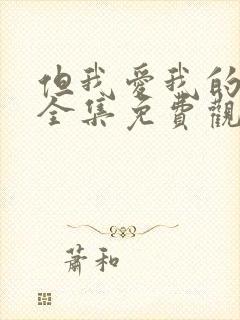 但我愛我的
全集免費觀
蕭和